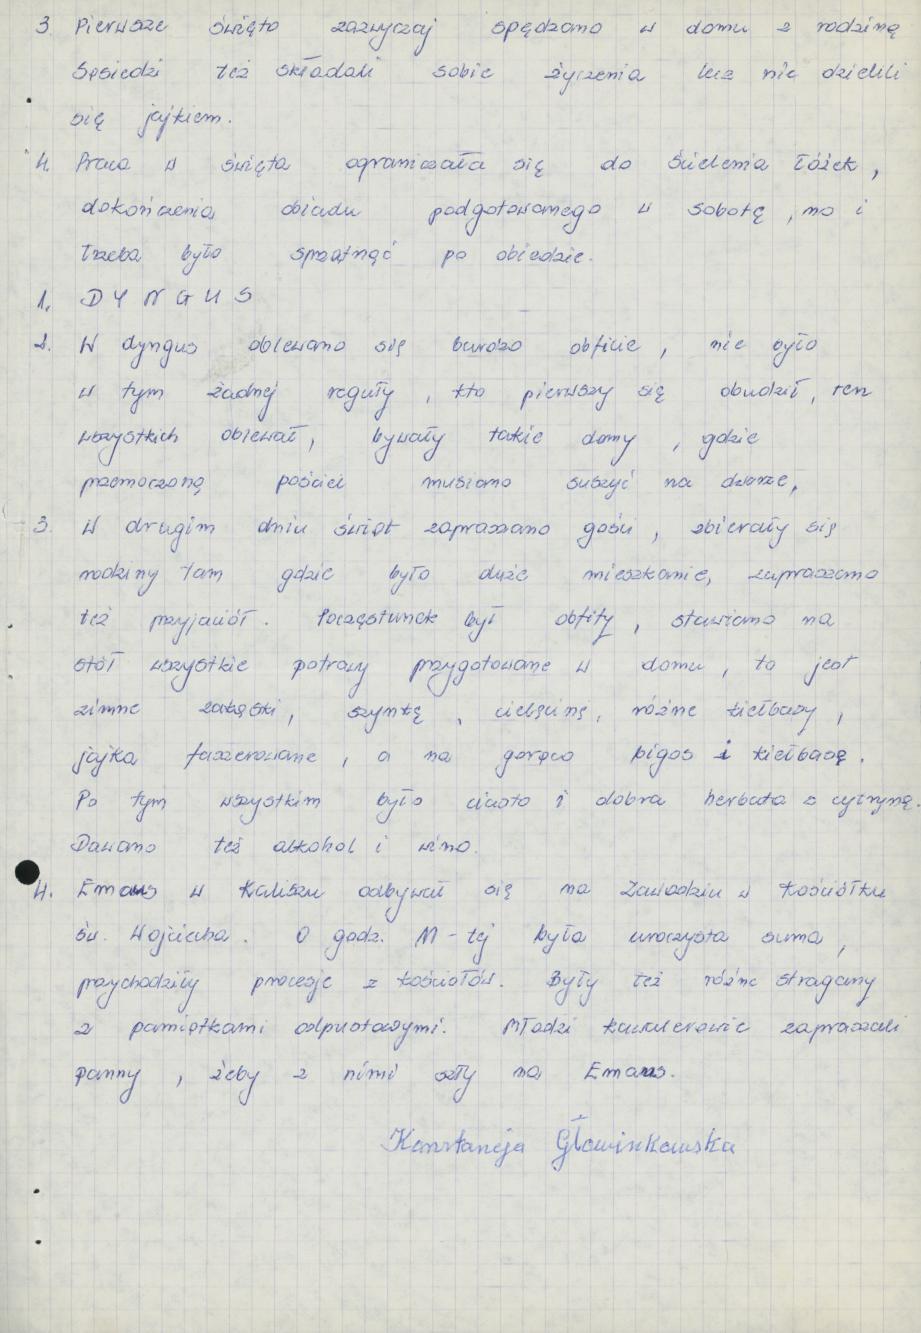 3. Pierwsze święto zazwyczaj spędzano w domu z rodziną
Sąsiedzi też składali sobie życzenia lecz nie dzielili
się jajkiem.
4. Praca w święta ograniczała się do ścielenia łóżek,
dokończenia obiadu podgotowanego w sobotę, no i
trzeba było sprzątnąć po obiedzie.
1. DYNGUS
2. W dyngus oblewano się bardzo obficie, nie było
w tym żadnej reguły, kto pierwszy się obudził, ten
wszystkich oblewał, bywały takie domy, gdzie
przemoczoną pościel musiano suszyć na dworze,
3. W drugim dniu świąt zapraszano gości, zbierały się
rodziny tam gdzie było duże mieszkanie, zapraszano
też przyjaciół. Poczęstunek był obfity, stawiano na
stół wszystkie potrawy przygotowane w domu, to jest
zimne zakąski, szynkę, cielęcinę, różne kiełbasy,
jajka faszerowane, a na gorąco bigos i kiełbasę.
Po tym wszystkim było ciasto i dobra herbata z cytryną.
Dawano też alkohol i wino.
4. Emaus w Kaliszu odbywał się na Zawodziu w kościółku
św. Wojciecha. O godz. 11-tej była uroczysta suma,
przychodziły procesje z kościołów. Były też różne stragany
z pamiątkami odpustowymi. Młodzi kawalerowie zapraszali
panny, żeby z nimi szły na Emaus.
Konstancja Głowinkowska